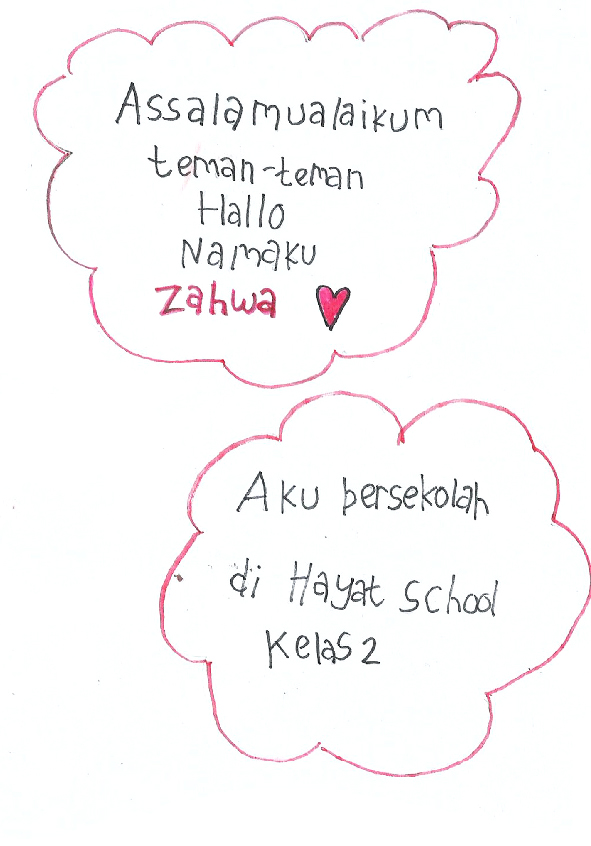 Assalamualaikum
teman-teman
Hallo
Namaku
Zahwa
Aku bersekolah
di Hayat School
Kelas 2